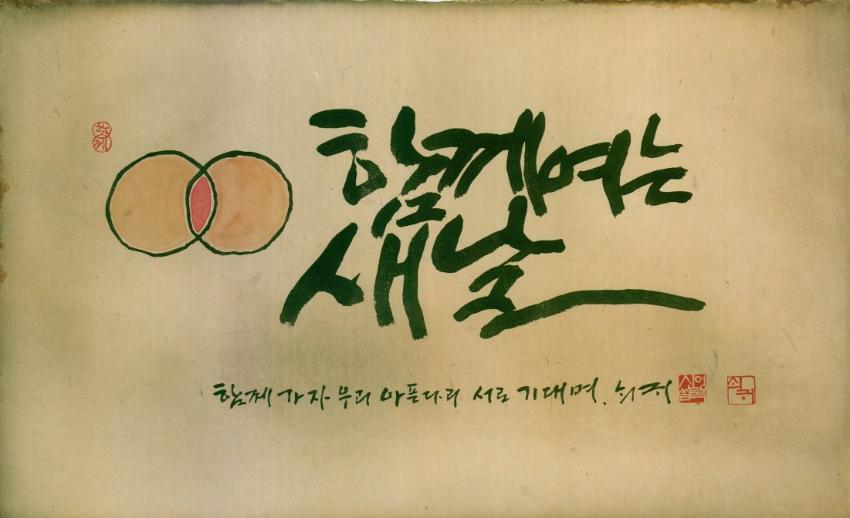 함께여는
새날
함께 가자 우리 아픈다리 서로 기대며.